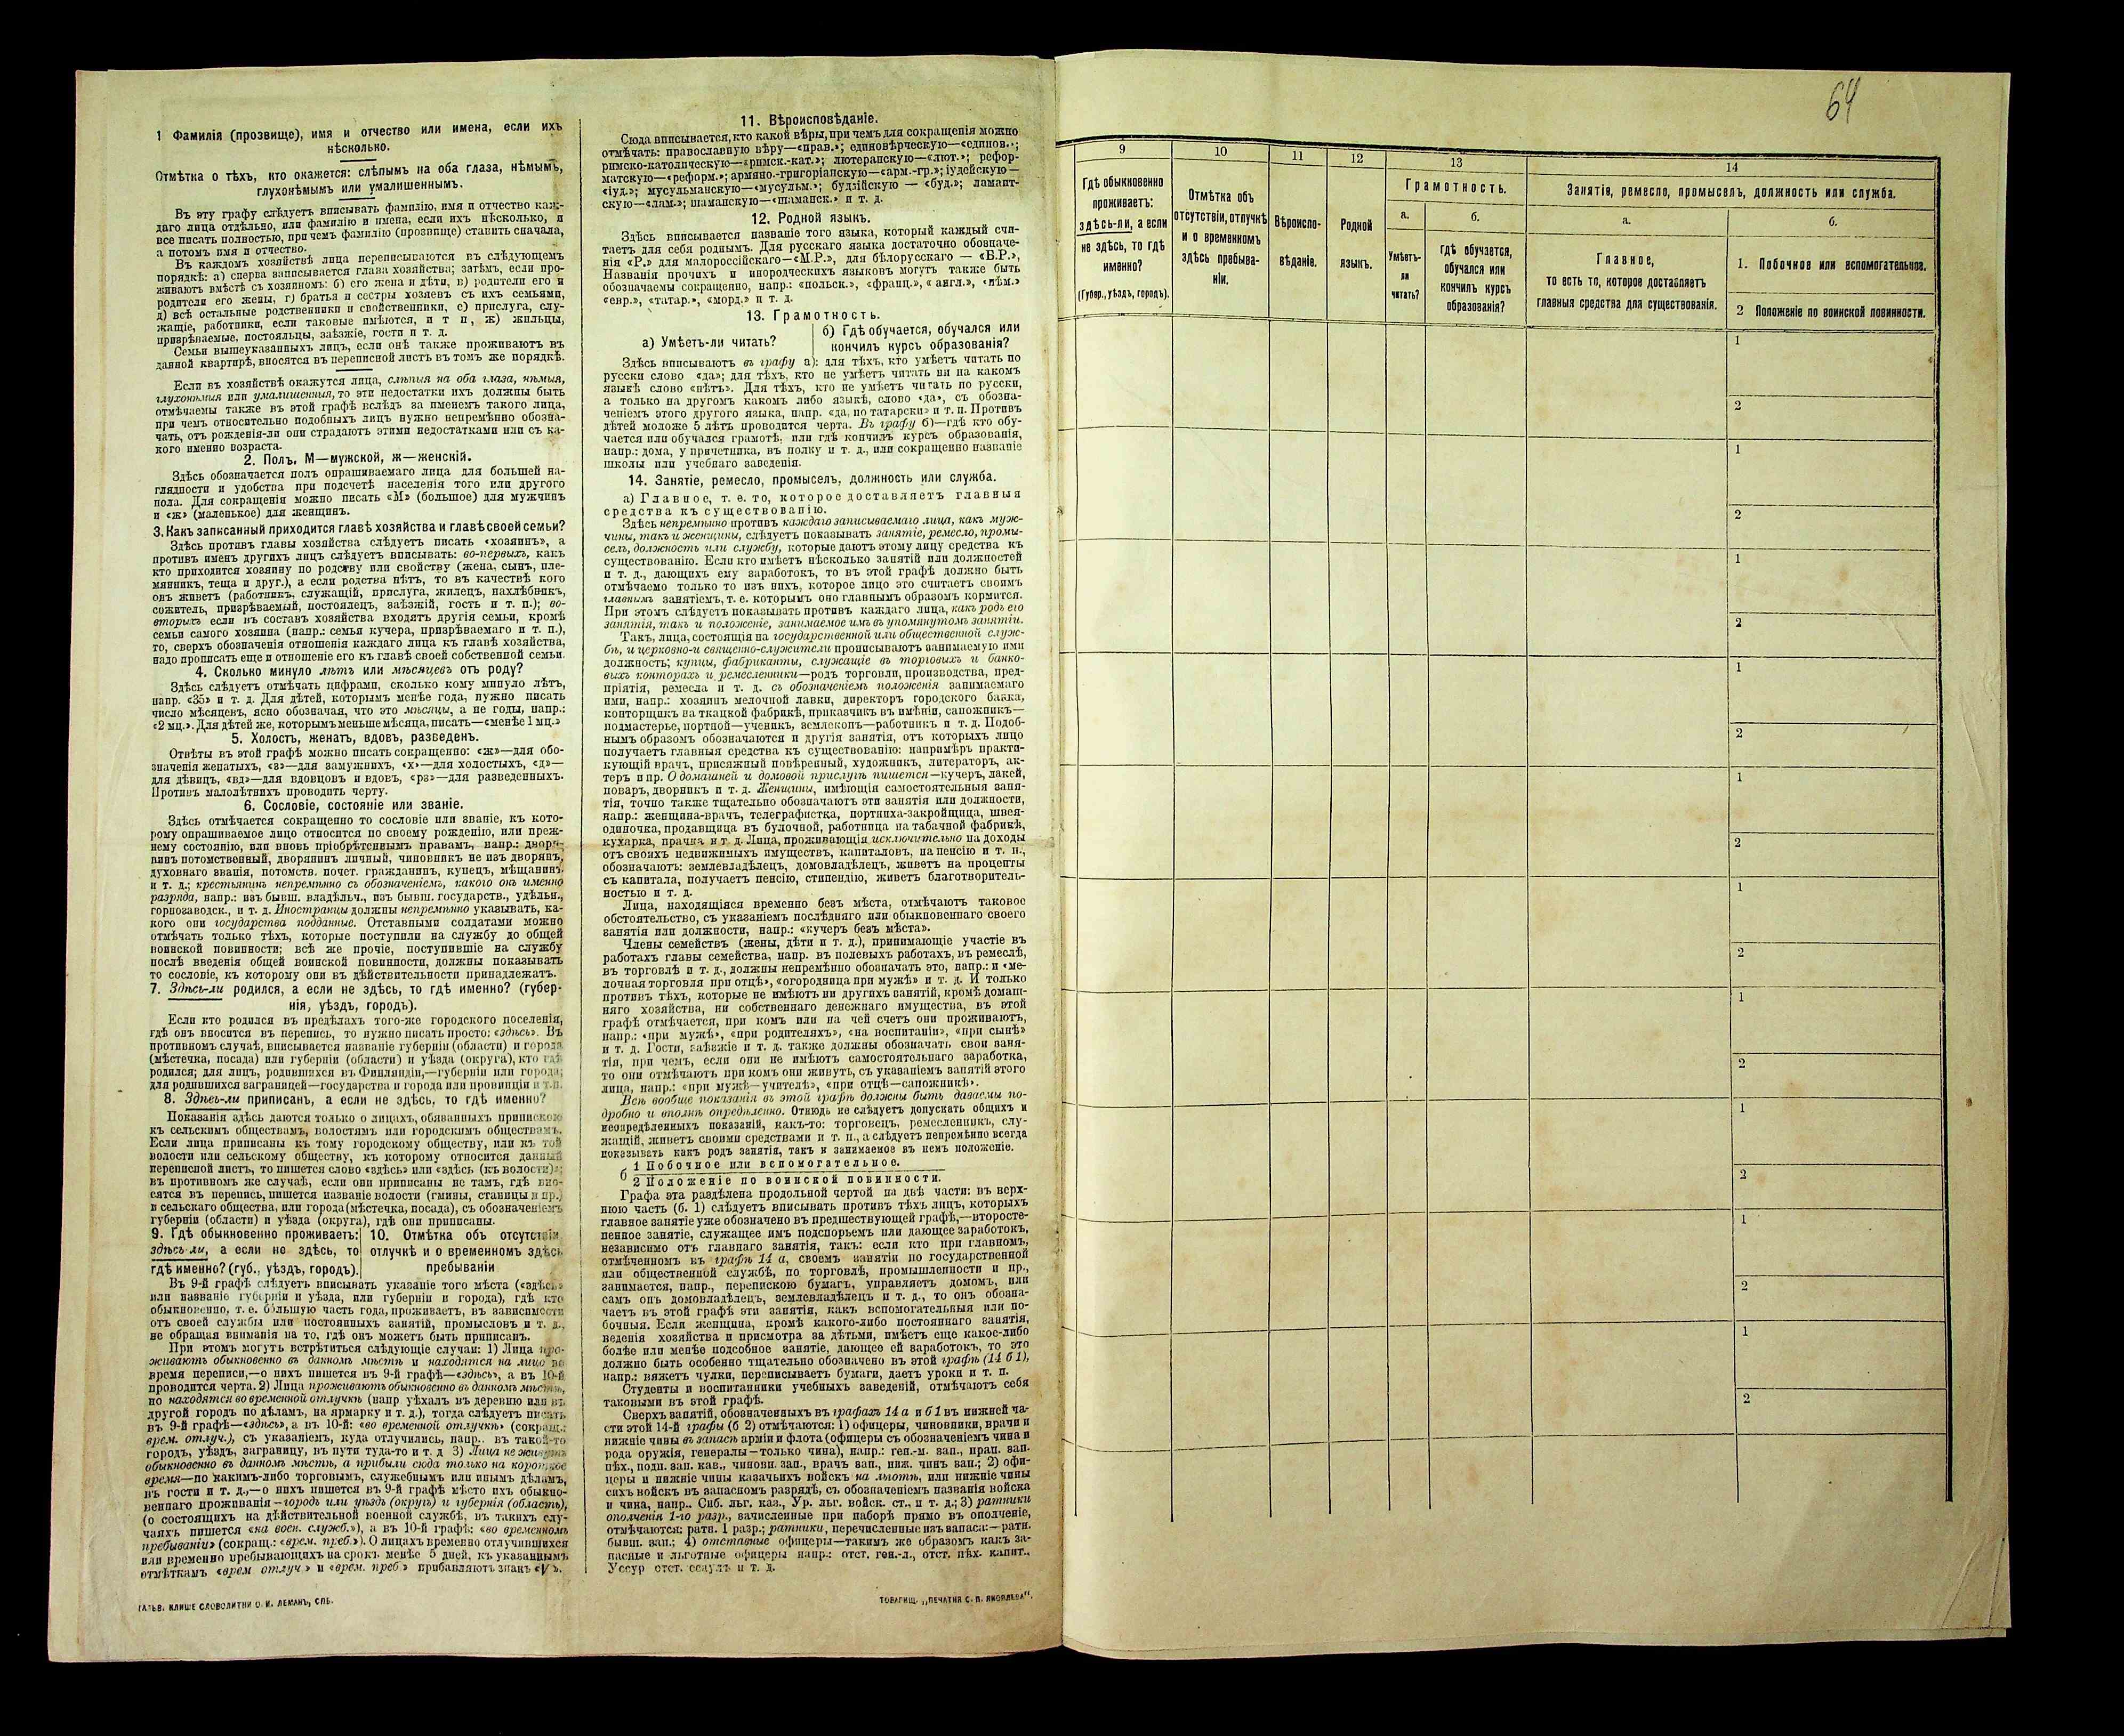 1 Фамилія (прозвище), имя и отчество или имена, если ихъ
нѣсколько.
Отмѣтка о тѣхъ, кто окажется: слѣпымъ на оба глаза, нѣмымъ,
глухонѣмымъ или умалишеннымъ.
Въ эту графу слѣдуетъ вписывать фамилію, имя и отчество каж-
даго лица отдѣльно, или фамилію и имена, если ихъ нѣсколько, и
все писать полностью, при чемъ фамилію (прозвище) ставить сначала,
а потомъ имя и отчество.
Въ каждомъ хозяйствѣ лица переписываются въ слѣдующемъ
порядкѣ: а) сперва записывается глава хозяйства; затѣмъ, если про-
живаютъ вмѣстѣ съ хозяиномъ: б) его жена и дѣти, в) родители его и
родители его жены, г) братья и сестры хозяевъ съ ихъ семьями,
д) всѣ остальные родственники и свойственники, е) прислуга, слу-
жащіе, работники, если таковые имѣются, и т п, ж) жильцы,
призрѣваемые, постояльцы, заѣзжіе, гости и т. д.
Семьи вышеуказанныхъ лицъ, если онѣ также проживаютъ въ
данной квартирѣ, вносятся въ переписной листъ въ томъ же порядкѣ.
Если въ хозяйствѣ окажутся лица, слѣпыя на оба глаза, нѣмыя,
глухонѣмыя или умалишенныя, то эти недостатки ихъ должны быть
отмѣчаемы также въ этой графѣ вслѣдъ за именемъ такого лица,
при чемъ относительно подобныхъ лицъ нужно непремѣнно обозна-
чать, отъ рожденія-ли они страдаютъ этими недостатками или съ ка-
кого именно возраста.
2. Полъ. М—мужской, ж—женскій.
Здѣсь обозначается полъ опрашиваемаго лица для большей на-
глядности и удобства при подсчетѣ населенія того или другого
пола. Для сокращенія можно писать «М» (большое) для мужчинъ
и «ж» (маленькое) для женщинъ.
3. Какъ записанный приходится главѣ хозяйства и главѣ своей семьи?
Здѣсь противъ главы хозяйства слѣдуетъ писать «хозяинъ», а
противъ именъ другихъ лицъ слѣдуетъ вписывать: во-первыхъ, какъ
кто приходится хозяину по родству или свойству (жена, сынъ, пле-
мянникъ, теща и друг.), а если родства нѣтъ, то въ качествѣ кого
онъ живетъ (работникъ, служащій, прислуга, жилецъ, нахлѣбникъ,
сожитель, призрѣваемый, постоялецъ, заѣзжій, гость и т. п.); во-
вторыхъ если въ составъ хозяйства входятъ другія семьи, кромѣ
семьи самого хозяина (напр.: семья кучера, призрѣваемаго и т. п.),
то, сверхъ обозначенія отношенія каждаго лица къ главѣ хозяйства,
надо прописать еще и отношеніе его къ главѣ своей собственной семьи.
4. Сколько минуло лѣтъ или мѣсяцевъ отъ роду?
Здѣсь слѣдуетъ отмѣчать цифрами, сколько кому минуло лѣтъ,
напр. «35» и т. д. Для дѣтей, которымъ менѣе года, нужно писать
число мѣсяцевъ, ясно обозначая, что это мѣсяцы, а не годы, напр.:
«2 мц.». Для дѣтей же, которымъ меньше мѣсяца, писать—«менѣе 1 мц.»
5. Холостъ, женатъ, вдовъ, разведенъ.
Отвѣты въ этой графѣ можно писать сокращенно: «ж»—для обо-
значенія женатыхъ, «з»—для замужнихъ, «х»—для холостыхъ, «д»—
для дѣвицъ, «вд»—для вдовцовъ и вдовъ, «рз»—для разведенныхъ.
Противъ малолѣтнихъ проводить черту.
6. Сословіе, состояніе или званіе.
Здѣсь отмѣчается сокращенно то сословіе или званіе, къ кото-
рому опрашиваемое лицо относится по своему рожденію, или преж-
нему состоянію, или вновь пріобрѣтеннымъ правамъ, напр.: дворя-
нинъ потомственный, дворянинъ личный, чиновникъ не изъ дворянъ,
духовнаго званія, потомств. почет. гражданинъ, купецъ, мѣщанинъ.
и т. д.; крестьянинъ непремѣнно съ обозначеніемъ, какого онъ именно
разряда, напр.: изъ бывш. владѣльч., изъ бывш. государств., удѣльн.,
горнозаводск., и т. д. Иностранцы должны непремѣнно указывать, ка-
кого они государства подданные. Отставными солдатами можно
отмѣчать только тѣхъ, которые поступили на службу до общей
воинской повинности; всѣ же прочіе, поступившіе на службу
послѣ введенія общей воинской повинности, должны показывать
то сословіе, къ которому они въ дѣйствительности принадлежатъ.
7. Здѣсь-ли родился, а если не здѣсь, то гдѣ именно? (губер-
нія, уѣздъ, городъ).
Если кто родился въ предѣлахъ того-же городского поселенія,
гдѣ онъ вносится въ перепись, то нужно писать просто: «здѣсь». Въ
противномъ случаѣ, вписывается названіе губерніи (области) и города
(мѣстечка, посада) или губерніи (области) и уѣзда (округа), кто гдѣ
родился; для лицъ, родившихся въ Финляндіи,—губерніи или города;
для родившихся заграницей—государства и города или провинціи и т.п.
8. Здѣсь-ли приписанъ, а если не здѣсь, то гдѣ именно?
Показанія здѣсь даются только о лицахъ, обязанныхъ припискою
къ сельскимъ обществамъ, волостямъ или городскимъ обществамъ.
Если лица приписаны къ тому городскому обществу, или къ той
волости или сельскому обществу, къ которому относится данный
переписной листъ, то пишется слово «здѣсь» или «здѣсь (къ волости)»;
въ противномъ же случаѣ, если они приписаны не тамъ, гдѣ вно-
сятся въ перепись, пишется названіе волости (гмины, станицы и пр.)
и сельскаго общества, или города (мѣстечка, посада), съ обозначеніемъ
губерніи (области) и уѣзда (округа), гдѣ они приписаны.
9. Гдѣ обыкновенно проживаетъ:
здѣсь ли, а если не здѣсь, то
гдѣ именно? (губ., уѣздъ, городъ).
10. Отмѣтка объ отсутствіи
отлучкѣ и о временномъ здѣсь
пребываніи
Въ 9-й графѣ слѣдуетъ вписывать указаніе того мѣста («здѣсь»
или названіе губерніи и уѣзда, или губерніи и города), гдѣ кто
обыкновенно, т. е. большую часть года, проживаетъ, въ зависимости
отъ своей службы или постоянныхъ занятій, промысловъ и т. д.,
не обращая вниманія на то, гдѣ онъ можетъ быть приписанъ.
При этомъ могутъ встрѣтиться слѣдующіе случаи: 1) Лица про-
живаютъ обыкновенно въ данномъ мѣстѣ и находятся на лицо во
время переписи,—о нихъ пишется въ 9-й графѣ—«здѣсь», а въ 10-й
проводится черта. 2) Лица проживаютъ обыкновенно въ данномъ мѣстѣ,
но находятся во временной отлучкѣ (напр уѣхалъ въ деревню или въ
другой городъ по дѣламъ, на ярмарку и т. д.), тогда слѣдуетъ писать
въ 9-й графѣ—«здѣсь», а въ 10-й: «во временной отлучкѣ» (сокращ.:
врем. отлуч.), съ указаніемъ, куда отлучились, напр.. въ такой-то
городъ, уѣздъ, заграницу, въ пути туда-то и т. д 3) Лица не живутъ
обыкновенно въ данномъ мѣстѣ, а прибыли сюда только на короткое
время—по какимъ-либо торговымъ, служебнымъ или инымъ дѣламъ,
въ гости и т. д.,—о нихъ пишется въ 9-й графѣ мѣсто ихъ обыкно-
веннаго проживанія—городъ или уѣздъ (округъ) и губернія (область),
(о состоящихъ на дѣйствительной военной службѣ, въ такихъ слу-
чаяхъ пишется «на воен. служб.»), а въ 10-й графѣ: «во временномъ
пребываніи» (сокращ.: «врем. преб.»). О лицахъ временно отлучившихся
или временно пребывающихъ на срокъ менѣе 5 дней, къ указаннымъ
отмѣткамъ «врем отлуч» и «врем. преб.» прибавляютъ знакъ «V».
ГАЛЬВ. КЛИШЕ СЛОВОЛИТНИ О. И. ЛЕМАНЪ, СПБ.
11. Вѣроисповѣданіе.
Сюда вписывается, кто какой вѣры, при чемъ для сокращенія можно
отмѣчать: православную вѣру—«прав.»; единовѣрческую—«единов.»;
римско-католическую—«римск.-кат.»; лютеранскую—«лют.»; рефор-
матскую—«реформ.»; армяно.-григоріанскую—«арм.-гр.»; іудейскую—
«іуд.»; мусульманскую—«мусульм.»; буддійскую — «буд.»; ламаит-
скую—«лам.»; шаманскую—«шаманск.» и т. д.
12. Родной языкъ.
Здѣсь вписывается названіе того языка, который каждый счи-
таетъ для себя роднымъ. Для русскаго языка достаточно обозначе-
нія «Р.» для малороссійскаго—«М.Р.», для бѣлорусскаго — «Б.Р.»,
Названія прочихъ и инородческихъ языковъ могутъ также быть
обозначаемы сокращенно, напр.: «польск.», «франц.», «англ.», «нѣм.»
«евр.», «татар.», «морд.» и т. д.
13. Грамотность.
а) Умѣетъ-ли читать?
б) Гдѣ обучается, обучался или
кончилъ курсъ образованія?
Здѣсь вписываютъ въ графу а): для тѣхъ, кто умѣетъ читать по
русски слово «да»; для тѣхъ, кто не умѣетъ читать ни на какомъ
языкѣ слово «нѣтъ». Для тѣхъ, кто не умѣетъ читать по русски,
а только на другомъ какомъ либо языкѣ, слово «да», съ обозна-
ченіемъ этого другого языка, напр. «да, по татарски» и т. п. Противъ
дѣтей моложе 5 лѣтъ проводится черта. Въ графу б)—гдѣ кто обу-
чается или обучался грамотѣ, или гдѣ кончилъ курсъ образованія,
напр.: дома, у причетника, въ полку и т. д., или сокращенно названіе
школы или учебнаго заведенія.
14. Занятіе, ремесло, промыселъ, должность или служба.
а) Главное, т. е. то, которое доставляетъ главныя
средства къ существованію.
Здѣсь непремѣнно противъ каждаго записываемаго лица, какъ муж-
чины, такъ и женщины, слѣдуетъ показывать занятіе, ремесло, промы-
селъ, должность или службу, которые даютъ этому лицу средства къ
существованію. Если кто имѣетъ нѣсколько занятій или должностей
и т. д., дающихъ ему заработокъ, то въ этой графѣ должно быть
отмѣчаемо только то изъ нихъ, которое лицо это считаетъ своимъ
главнымъ занятіемъ, т. е. которымъ оно главнымъ образомъ кормится.
При этомъ слѣдуетъ показывать противъ каждаго лица, какъ родъ его
занятія, такъ и положеніе, занимаемое имъ въ упомянутомъ занятіи.
Такъ, лица, состоящія на государственной или общественной служ-
бѣ, и церковно-и священно-служители прописываютъ занимаемую ими
должность; купцы, фабриканты, служащіе въ торговыхъ и банко-
выхъ конторахъ и ремесленники—родъ торговли, производства, пред-
пріятія, ремесла и т. д. съ обозначеніемъ положенія занимаемаго
ими, напр.: хозяинъ мелочной лавки, директоръ городского банка,
конторщикъ на ткацкой фабрикѣ, приказчикъ въ имѣніи, сапожникъ—
подмастерье, портной—ученикъ, землекопъ—работникъ и т. д. Подоб-
нымъ образомъ обозначаются и другія занятія, отъ которыхъ лицо
получаетъ главныя средства къ существованію: напримѣръ практи-
кующій врачъ, присяжный повѣренный, художникъ, литераторъ, ак-
теръ и пр. О домашней и домовой прислугѣ пишется—кучеръ, лакей,
поваръ, дворникъ и т. д. Женщины, имѣющія самостоятельныя заня-
тія, точно также тщательно обозначаютъ эти занятія или должности,
напр.: женщина-врачъ, телеграфистка, портниха-закройщица, швея-
одиночка, продавщица въ булочной, работница на табачной фабрикѣ,
кухарка, прачка и т. д. Лица, проживающія исключительно на доходы
отъ своихъ недвижимыхъ имуществъ, капиталовъ, на пенсію и т. п.,
обозначаютъ: землевладѣлецъ, домовладѣлецъ, живетъ на проценты
съ капитала, получаетъ пенсію, стипендію, живетъ благотворитель-
ностью и т. д.
Лица, находящіяся временно безъ мѣста, отмѣчаютъ таковое
обстоятельство, съ указаніемъ послѣдняго или обыкновеннаго своего
занятія или должности, напр.: «кучеръ безъ мѣста».
Члены семействъ (жены, дѣти и т. д.), принимающіе участіе въ
работахъ главы семейства, напр. въ полевыхъ работахъ, въ ремеслѣ,
въ торговлѣ и т. д., должны непремѣнно обозначать это, напр.: и «ме-
лочная торговля при отцѣ», «огородница при мужѣ» и т. д. И только
противъ тѣхъ, которые не имѣютъ ни другихъ занятій, кромѣ домаш-
няго хозяйства, ни собственнаго денежнаго имущества, въ этой
графѣ отмѣчается, при комъ или на чей счетъ они проживаютъ,
напр.: «при мужѣ», «при родителяхъ», «на воспитаніи», «при сынѣ»
и т. д. Гости, заѣзжіе и т. д. также должны обозначать свои заня-
тія, при чемъ, если они не имѣютъ самостоятельнаго заработка,
то они отмѣчаютъ при комъ они живутъ, съ указаніемъ занятій этого
лица, напр.: «при мужѣ—учителѣ», «при отцѣ—сапожникѣ».
Всѣ вообще показанія въ этой графѣ должны быть даваемы по-
дробно и вполнѣ опредѣленно. Отнюдь не слѣдуетъ допускать общихъ и
неопредѣленныхъ показаній, какъ-то: торговецъ, ремесленникъ, слу-
жащій, живетъ своими средствами и т. п., а слѣдуетъ непремѣнно всегда
показывать какъ родъ занятія, такъ и занимаемое въ немъ положеніе.
б 1 Побочное или вспомогательное.
2 Положеніе по воинской повинности.
Графа эта раздѣлена продольной чертой на двѣ части: въ верх-
нюю часть (б. 1) слѣдуетъ вписывать противъ тѣхъ лицъ, которыхъ
главное занятіе уже обозначено въ предшествующей графѣ,—второсте-
пенное занятіе, служащее имъ подспорьемъ или дающее заработокъ,
независимо отъ главнаго занятія, такъ: если кто при главномъ,
отмѣченномъ къ графѣ 14 а, своемъ занятіи по государственной
или общественной службѣ, по торговлѣ, промышленности и пр.,
занимается, напр., перепискою бумагъ, управляетъ домомъ, или
самъ онъ домовладѣлецъ, землевладѣлецъ и т. д., то онъ обозна-
чаетъ въ этой графѣ эти занятія, какъ вспомогательныя или по-
бочныя. Если женщина, кромѣ какого-либо постояннаго занятія,
веденія хозяйства и присмотра за дѣтьми, имѣетъ еще какое-либо
болѣе или менѣе подсобное занятіе, дающее ей заработокъ, то это
должно быть особенно тщательно обозначено въ этой графѣ (14 б 1),
напр.: вяжетъ чулки, переписываетъ бумаги, даетъ уроки и т. п.
Студенты и воспитанники учебныхъ заведеній, отмѣчаютъ себя
таковыми въ этой графѣ.
Сверхъ занятій, обозначенныхъ въ графахъ 14 а и б 1 въ нижней ча-
сти этой 14-й графы (б 2) отмѣчаются: 1) офицеры, чиновники, врачи и
нижніе чины въ запасѣ арміи и флота (офицеры съ обозначеніемъ чина и
рода оружія, генералы—только чина), напр.: ген.-м. зап., прап. зап.
пѣх., подп. зап. кав., чиновн. зап., врачъ зап., ниж. чинъ зап.; 2) офи-
церы и нижніе чины казачьихъ войскъ на льготѣ, или нижніе чины
сихъ войскъ въ запасномъ разрядѣ, съ обозначеніемъ названія войска
и чина, напр.. Сиб. льг. каз., Ур. льг. войск. ст., и т. д.; 3) ратники
ополченія 1-го разр., зачисленные при наборѣ прямо въ ополченіе,
отмѣчаются: ратн. 1 разр.; ратники, перечисленные изъ запаса:—ратн.
бывш. зап.; 4) отставные офицеры—такимъ же образомъ какъ за-
пасные и льготные офицеры напр.: отст. ген.-л., отст. пѣх. капит.,
Уссур отст. есаулъ и т. д.
ТОВАРИЩ. „ПЕЧАТНЯ С. П. ЯКОВЛЕВА".
64
9
10
11
12
13
14
Гдѣ обыкновенно
проживаетъ:
здѣсь-ли, а если
не здѣсь, то гдѣ
именно?
(Губер., уѣздъ, городъ).
Отмѣтка объ
отсутствіи, отлучкѣ
и о временномъ
здѣсь пребыва-
ніи.
Вѣроиспо-
вѣданіе.
Родной
языкъ.
Грамотность.
а.
Умѣетъ-
ли
читать?
б.
гдѣ обучается,
обучался или
кончилъ курсъ
образованія?
Занятіе, ремесло, промыселъ, должность или служба.
а.
Главное,
то есть то, которое доставляетъ
главныя средства для существованія.
б.
1. Побочное или вспомогательное.
2 Положеніе по воинской повинности.
1
2
1
2
1
2
1
2
1
2
1
2
1
2
1
2
1
2
1
2